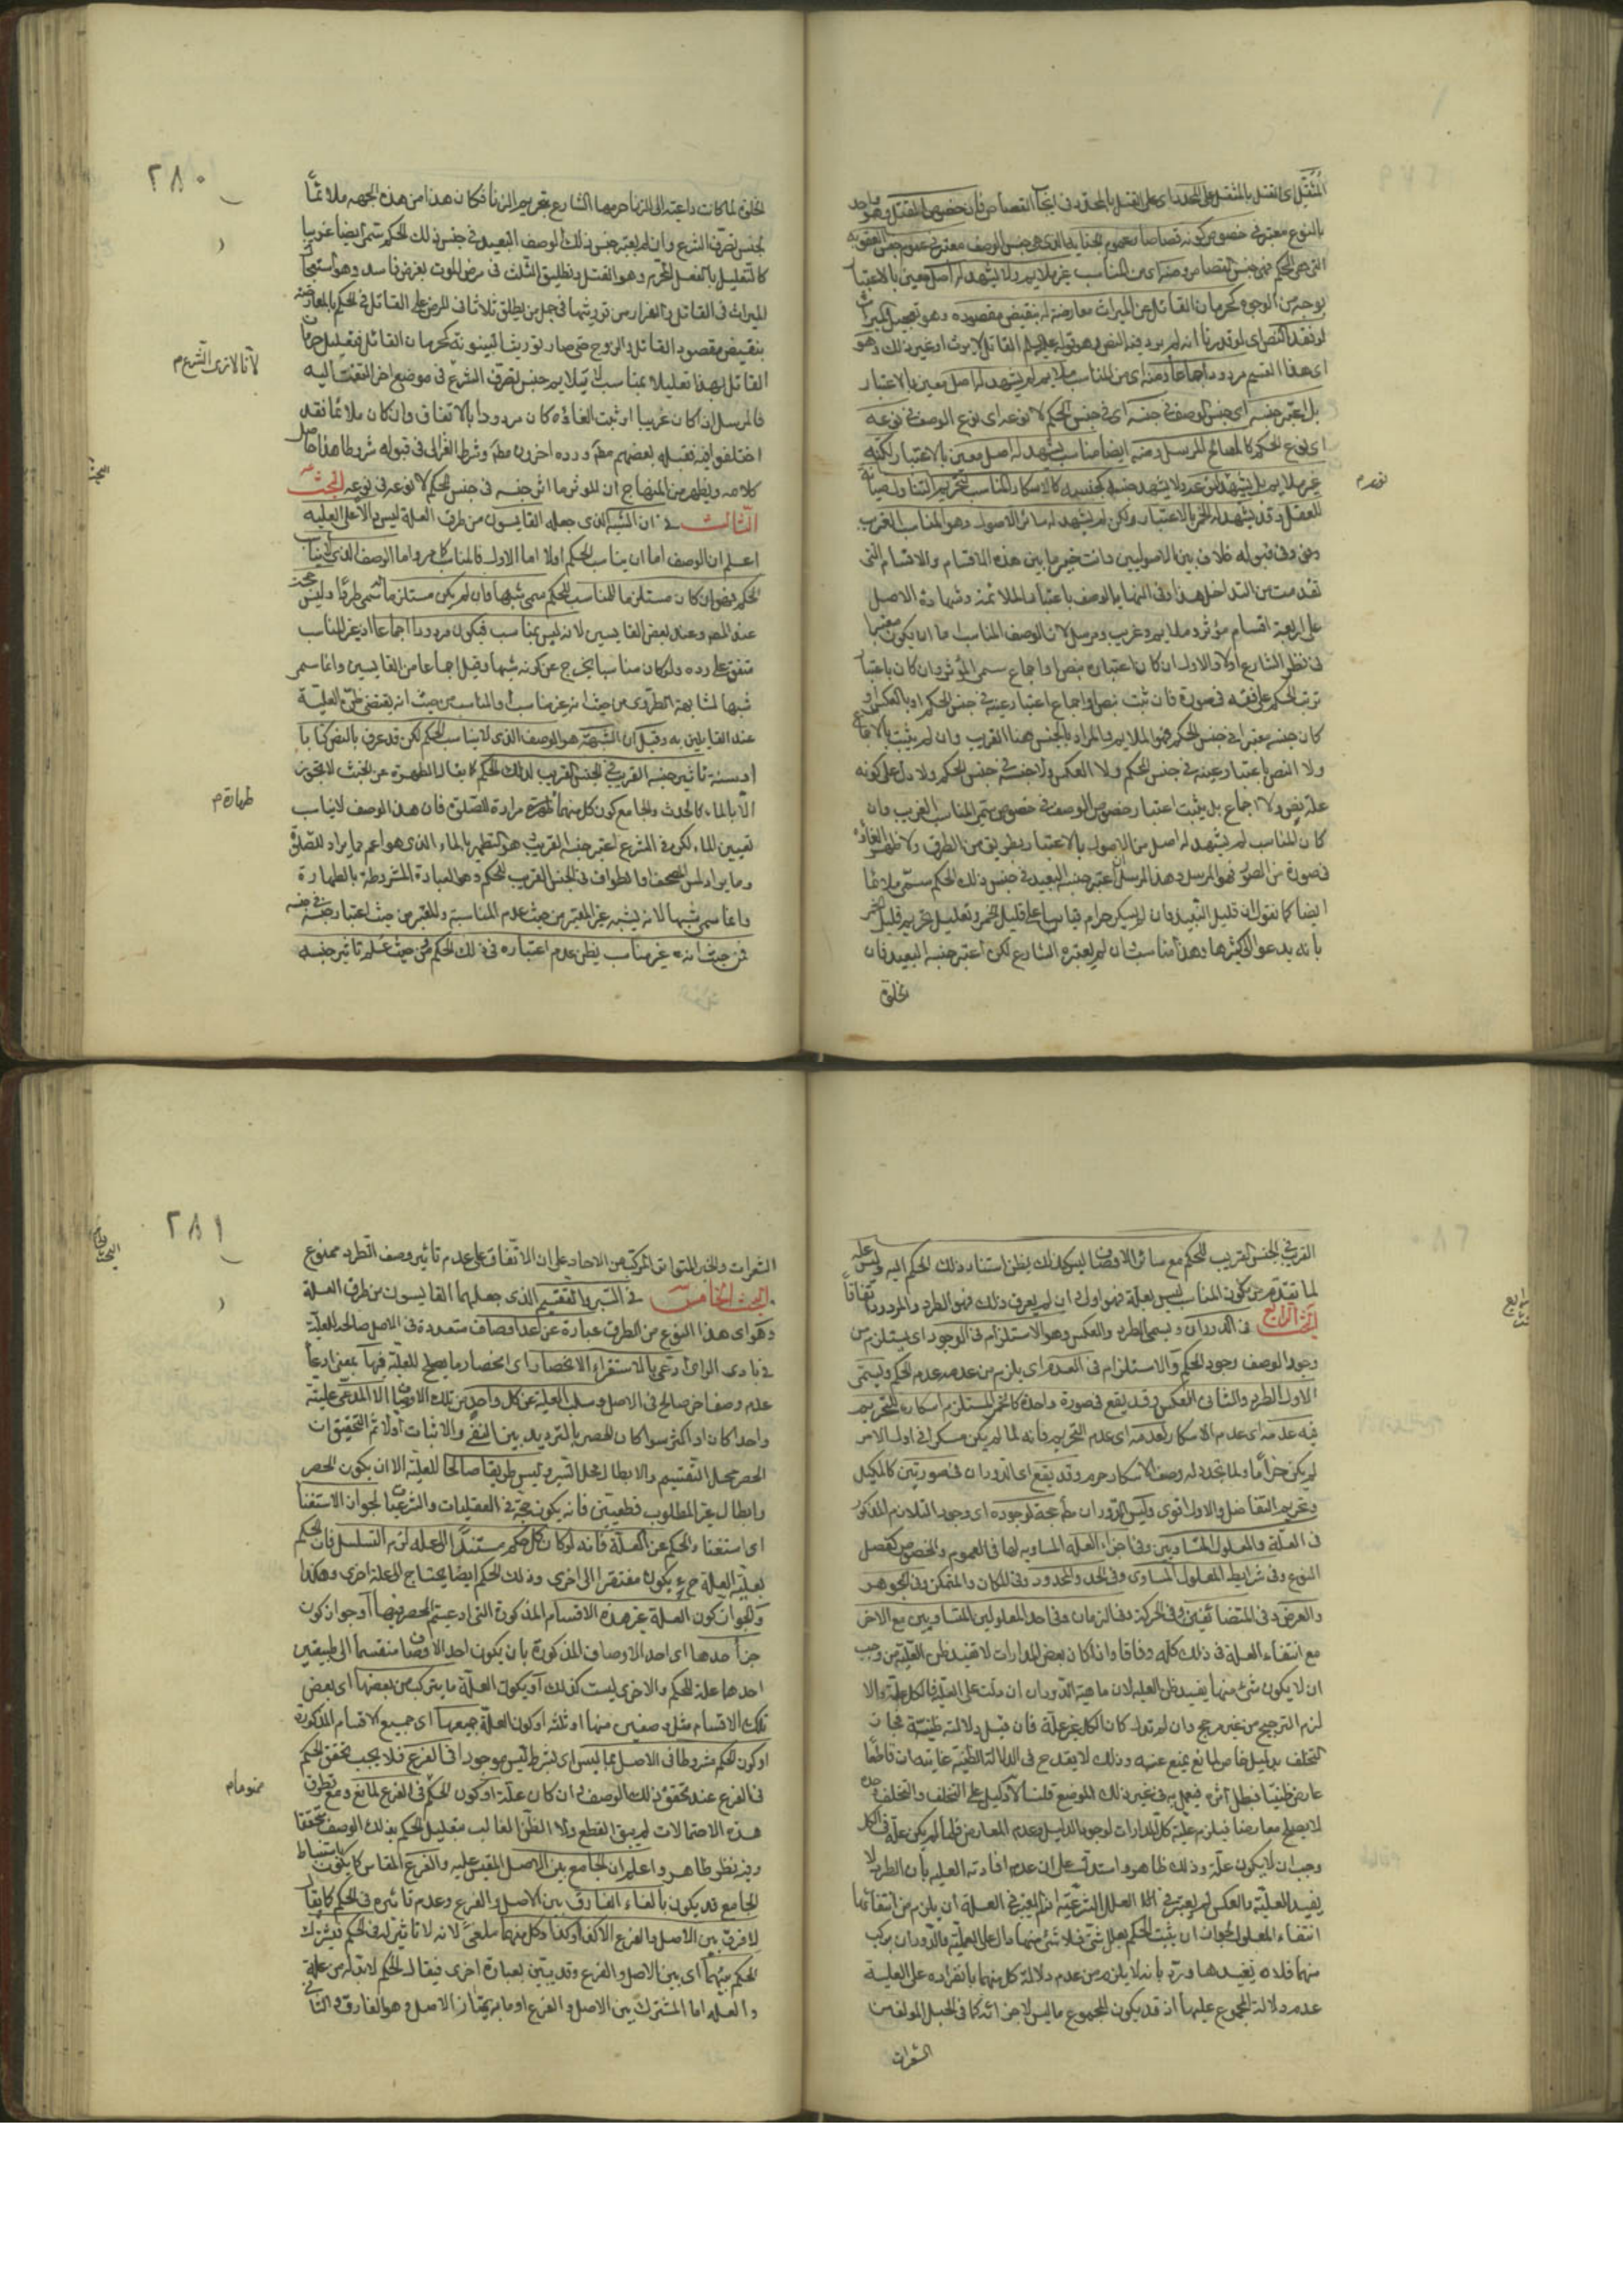 المثقل اى القتل بالمثقل على المحدد اى على القتل بالمحدد فى ايجاب القصاص فان خصوص القتل وهو واحد
بالنوع معتبر فى خصوص كونه قصاصا وعموم الجناية الذى هو جنس الوصف معتبر فى عموم جنس العقوبة
التى هى الحكم فهى جنس القصاص ومنه اى من المناسب غير ملايم ولا يشهد له اصل معين بالاعتبار
بوجه من الوجوه كحرمان القاتل عن الميراث معارضة له بنقيض مقصوده وهو تعجيل الميراث
لو فقد النص اى لو قدرنا انه لم يرد فيه النص وهو قوله عليه السلام القاتل لا يرث او غير ذلك وهو
اى هذا القسم مردود اجماعا ومنه اى من المناسب ملايم لم يشهد له اصل معين بالاعتبار
بل اعتبر جنسه اى جنس الوصف فى جنسه اى فى جنس الحكم لا نوعه اى نوع الوصف فى نوعه
اى نوع الحكم كالمصالح المرسل ومنه ايضا مناسب يشهد له اصل معين بالاعتبار لكنه
غير ملايم بل يشهد نوعه ولا يشهد جنسه لجنسه كالاسكار المناسب لتحريم التناول صيانة
للعقل وقد يشهد له الخمر بالاعتبار ولكن لم يشهد له سائر الاصول وهو المناسب الغريب
وفى قبوله خلاف بين الاصوليين وانت خبير بما بين هذه الاقسام والاقسام التى
تقدمت من التداخل هذا وفى النهاية الوصف باعتبار الملائمة وشهادة الاصل
على اربعة اقسام مؤثر وملايم وغريب ومرسل لان الوصف المناسب اما ان يكون معتبرا
فى نظر الشارع اولا والاول ان كان اعتباره بنص او اجماع سمى المؤثر وان كان باعتبار
ترتب الحكم على وفقه فى صورة فان ثبت بنص او اجماع اعتبار عينه فى جنس الحكم او بالعكس او
كان جنسه معتبرا فى جنس الحكم فهو الملايم والمراد بالجنس هنا القريب وان لم يثبت بالاجماع
ولا النص باعتبار عينه فى جنس الحكم ولا العكس ولا جنسه فى جنس الحكم ولا دل على كونه
علة بنص ولا اجماع بل يثبت اعتبار خصوص الوصف فى خصوص سمى المناسب الغريب وان
كان المناسب لم يشهد له اصل من الاصول بالاعتبار بطريق من الطرق ولا ظهر الغاؤه
فى صورة من الصور فهو المرسل وهذا المرسل ان اعتبر جنسه البعيد فى جنس ذلك الحكم سمى ملائما
ايضا كما نقول ان قليل النبيذ وان لم يسكر حرام قياسا على قليل الخمر وتعليل تحريم قليل الخمر
بانه يدعو الى كثيرها وهذا مناسب وان لم يعتبره الشارع لكن اعتبر جنسه البعيد فان
الخلوة
نوعه م
٢٨٠
الخلوة لما كانت داعية الى الزنا حرمها الشارع بتحريم الزنا فكان هذا من هذه الجهة ملائما
لجنس تصرف الشرع وان لم يعتبر جنس ذلك الوصف البعيد فى جنس ذلك الحكم سمى ايضا غريبا
كالتعليل بالفعل المحرم وهو القتل وتطليق الثلث فى مرض الموت بغرض فاسد وهو استعجال
الميراث فى القاتل والفرار من توريثها فى رجل من يطلق ثلاثا فى المرض على القاتل فى الحكم بالمعارضة
بنقيض مقصود القاتل والزوج حتى صار توريث المبتوتة كحرمان القاتل فتعليل حرمان
القاتل بهذا تعليلا بمناسب لا يلايم جنس تصرف الشرع فى موضع اخر التفت اليه
فالمرسل ان كان غريبا او ثبت الغاؤه كان مردودا بالاتفاق وان كان ملائما فقد
اختلفوا فيه فقبله بعضهم مطلقا ورده اخرون مطلقا وشرط الغزالى فى قبوله شروطا هذا حاصل
كلامه ويظهر من المنهاج ان المؤثر ما اثر جنسه فى جنس الحكم لا نوعه فى نوعه البحث
الثالث فى ان الشبه الذى جعله القايسون من طرق العلة ليس دالا على العلية
اعلم ان الوصف اما ان يناسب الحكم اولا اما الاول فالمناسب كما مر واما الوصف الذى لا يناسب
الحكم فهو ان كان مستلزما للمناسب للحكم سمى شبها فان لم يكن مستلزما سمى طردا وليس بحجة
عند المص وعند بعض القايسين لانه ليس بمناسب فيكون مردودا اجماعا اذ غير المناسب
متفق على رده ولو كان مناسبا يخرج عن كونه شبها وقبل اجماعا من القايسين وانما سمى
شبها لمشابهته الطردى من حيث انه غير مناسب والمناسب من حيث انه يقتضى ظن العلية
عند القايلين به وقيل ان الشبه هو الوصف الذى لا يناسب الحكم لكن قد عرف بالنص كتابا
او سنة تاثير جنسه القريب فى الجنس القريب لذلك الحكم كما يقال الطهارة عن الخبث لا تجوز
الا بالماء كالحدث والجامع كون كل منهما طهارة مرادة للصلوة فان هذا الوصف لا يناسب
تعيين الماء لكن فى الشرع اعتبر جنسه القريب هو التطهر بالماء الذى هو اعم مما يراد للصلوة
وما يراد لمس المصحف والطواف فى الجنس القريب للحكم وهو العبادة المشروطة بالطهارة
وانما سمى شبها لانه يشبه غير المعتبر من حيث عدم المناسبة والمعتبر من حيث اعتبار جنسه فى جنسه
فمن حيث انه غير مناسب يظن عدم اعتباره فى ذلك الحكم ومن حيث علم تاثير جنسه
لانا لا نرى الشرع م
البحث
طهارة م
القريب فى الجنس القريب للحكم مع سائر الاوصاف ليس كذلك يظن استناد ذلك الحكم اليه وليس علة
لما تقدم من كون المناسب ليس بعلة فهو اولى ان لم يعرف ذلك فهو الطرد والمردود اتفاقا
البحث الرابع فى الدوران ويسمى الطرد والعكس وهو الاستلزام فى الوجود اى يستلزم من
وجود الوصف وجود الحكم والاستلزام فى العدم اى يلزم من عدمه عدم الحكم ويسمى
الاول الطرد والثانى العكس وقد يقع فى صورة واحدة كالخمر المستلزم اسكاره للتحريم
فيه عدمه اى عدم الاسكار لعدمه اى عدم التحريم فانه لما لم يكن مسكرا فى اول الامر
لم يكن حراما ولما تجدد له وصف الاسكار حرم وقد يقع اى الدوران فى صورتين كالمكيل
وتحريم التفاضل والاول اقوى وليس الدوران حجة لوجوده اى وجود التلازم المذكور
فى العلة والمعلول المتساويين وفى اجزاء العلة المساوية لها فى العموم والخصوص كفصل
النوع وفى شرايط المعلول المساوى وفى الحد والمحدود وفى المكان والمتمكن وفى الجوهر
والعرض وفى المتضائفين وفى الحركة وفى الزمان وفى احد المعلولين المتساويين مع الاخر
مع انتفاء العلة فى ذلك كله وفاقا واذا كان بعض المدارات لا تفيد ظن العلية من وجب
ان لا يكون شئ منها يفيد ظن العلية لان ماهية الدوران ان دلت على العلية فالكل علة والا
لزم الترجيح من غير مرجح وان لم تدل كان الكل غير علة فان قيل دلالته ظنية فجاز
التخلف بدليل خاص لمانع يمنع عنه وذلك لا يقدح فى الدلالة الظنية غايته ان قاطعا
عارض ظنيا فبطل اثره فيعمل به فى غير ذلك الموضع قلنا لا دليل على التخلف والتخلف وحده
لا يصلح معارضا فيلزم علية كل المدارات لوجود الدليل وعدم المعارض فلما لم يكن علة فى الكل
وجب ان لا يكون علة وذلك ظاهر واستدل على ان عدم افادته العلية بان الطرد لا
يفيد العلية والعكس لم يعتبر فى العلل الشرعية اذ لم يعتبر فى العلة ان يلزم من انتفائها
انتفاء المعلول لجواز ان يثبت الحكم بعلل شتى فلا شئ منهما دال على العلية والدوران مركب
منهما فلا يفيدها ورد بانه لا يلزم من عدم دلالة كل منهما بانفراده على العلية
عدم دلالة المجموع عليها اذ قد يكون للمجموع ما ليس لاجزائه كما فى الحبل المؤلف من
الشعرات
٢٨١
الشعرات والخبر المتواتر المركب من الاحاد على ان الاتفاق على عدم تاثير وصف الطرد ممنوع
البحث الخامس فى السبر والتقسيم الذى جعلهما القايسون من طرق العلة
وهو اى هذا النوع من الطرق عبارة عن عد اوصاف متعددة فى الاصل صالحة للعلية
فى بادى الراى وتدعى بالاستقراء الانحصار اى انحصار ما يصلح للعلية فيها بمعنى ادعاء
عدم وصف اخر صالح فى الاصل وسلب العلية عن كل واحد من تلك الاوصاف الا المدعى عليته
واحدا كان او اكثر سواء كان الحصر بالترديد بين النفى والاثبات اولا ثم التحقيق ان
الحصر محل التقسيم والابطال محل السبر وليس طريقا صالحا للعلية الا ان يكون الحصر
وابطال غير المطلوب قطعيين فانه يكون حجة فى العقليات والشرعيات لجواز الاستغناء
اى استغناء الحكم عن العلة فانه لو كان كل حكم مستندا الى علة لزم التسلسل فان الحكم
بعلية العلة ح يكون مفتقرا الى اخرى وذلك الحكم ايضا يحتاج الى علة اخرى وهكذا
ولجواز كون العلة غير هذه الاقسام المذكورة التى ادعيتم الحصر فيها او جواز كون
جزء احدها اى احد الاوصاف المذكورة بان يكون احد الاوصاف منقسما الى قسمين
احدهما علة للحكم والاخرى ليست كذلك او يكون العلة ما يتركب من بعضها اى بعض
تلك الاقسام مثل وصفين منها او ثلثة او كون العلة جميعها اى جميع الاقسام المذكورة
او كون الحكم مشروطا فى الاصل بما ليس اى بشرط ليس موجودا فى الفرع فلا يجب تحقق الحكم
فى الفرع عند تحقق ذلك الوصف وان كان علة او كون الحكم فى الفرع لمانع ومع تطرق
هذه الاحتمالات لم يبق القطع ولا الظن الغالب بتعليل الحكم بذلك الوصف متحققا
وفيه نظر ظاهر واعلم ان الجامع بين الاصل المقيس عليه والفرع المقاس كما يكون باستنباط
الجامع قد يكون بالغاء الفارق بين الاصل والفرع وعدم تاثيره فى الحكم كما يقال
لا فرق بين الاصل والفرع الا كذا وكذا وكل منهما ملغى لانه لا تاثير له فى الحكم فيشترك
الحكم بينهما اى بين الاصل والفرع وقد يبين بعبارة اخرى فيقال الحكم لا بد له من علة
والعلة اما المشترك بين الاصل والفرع او ما به يمتاز الاصل وهو الفارق والثانى